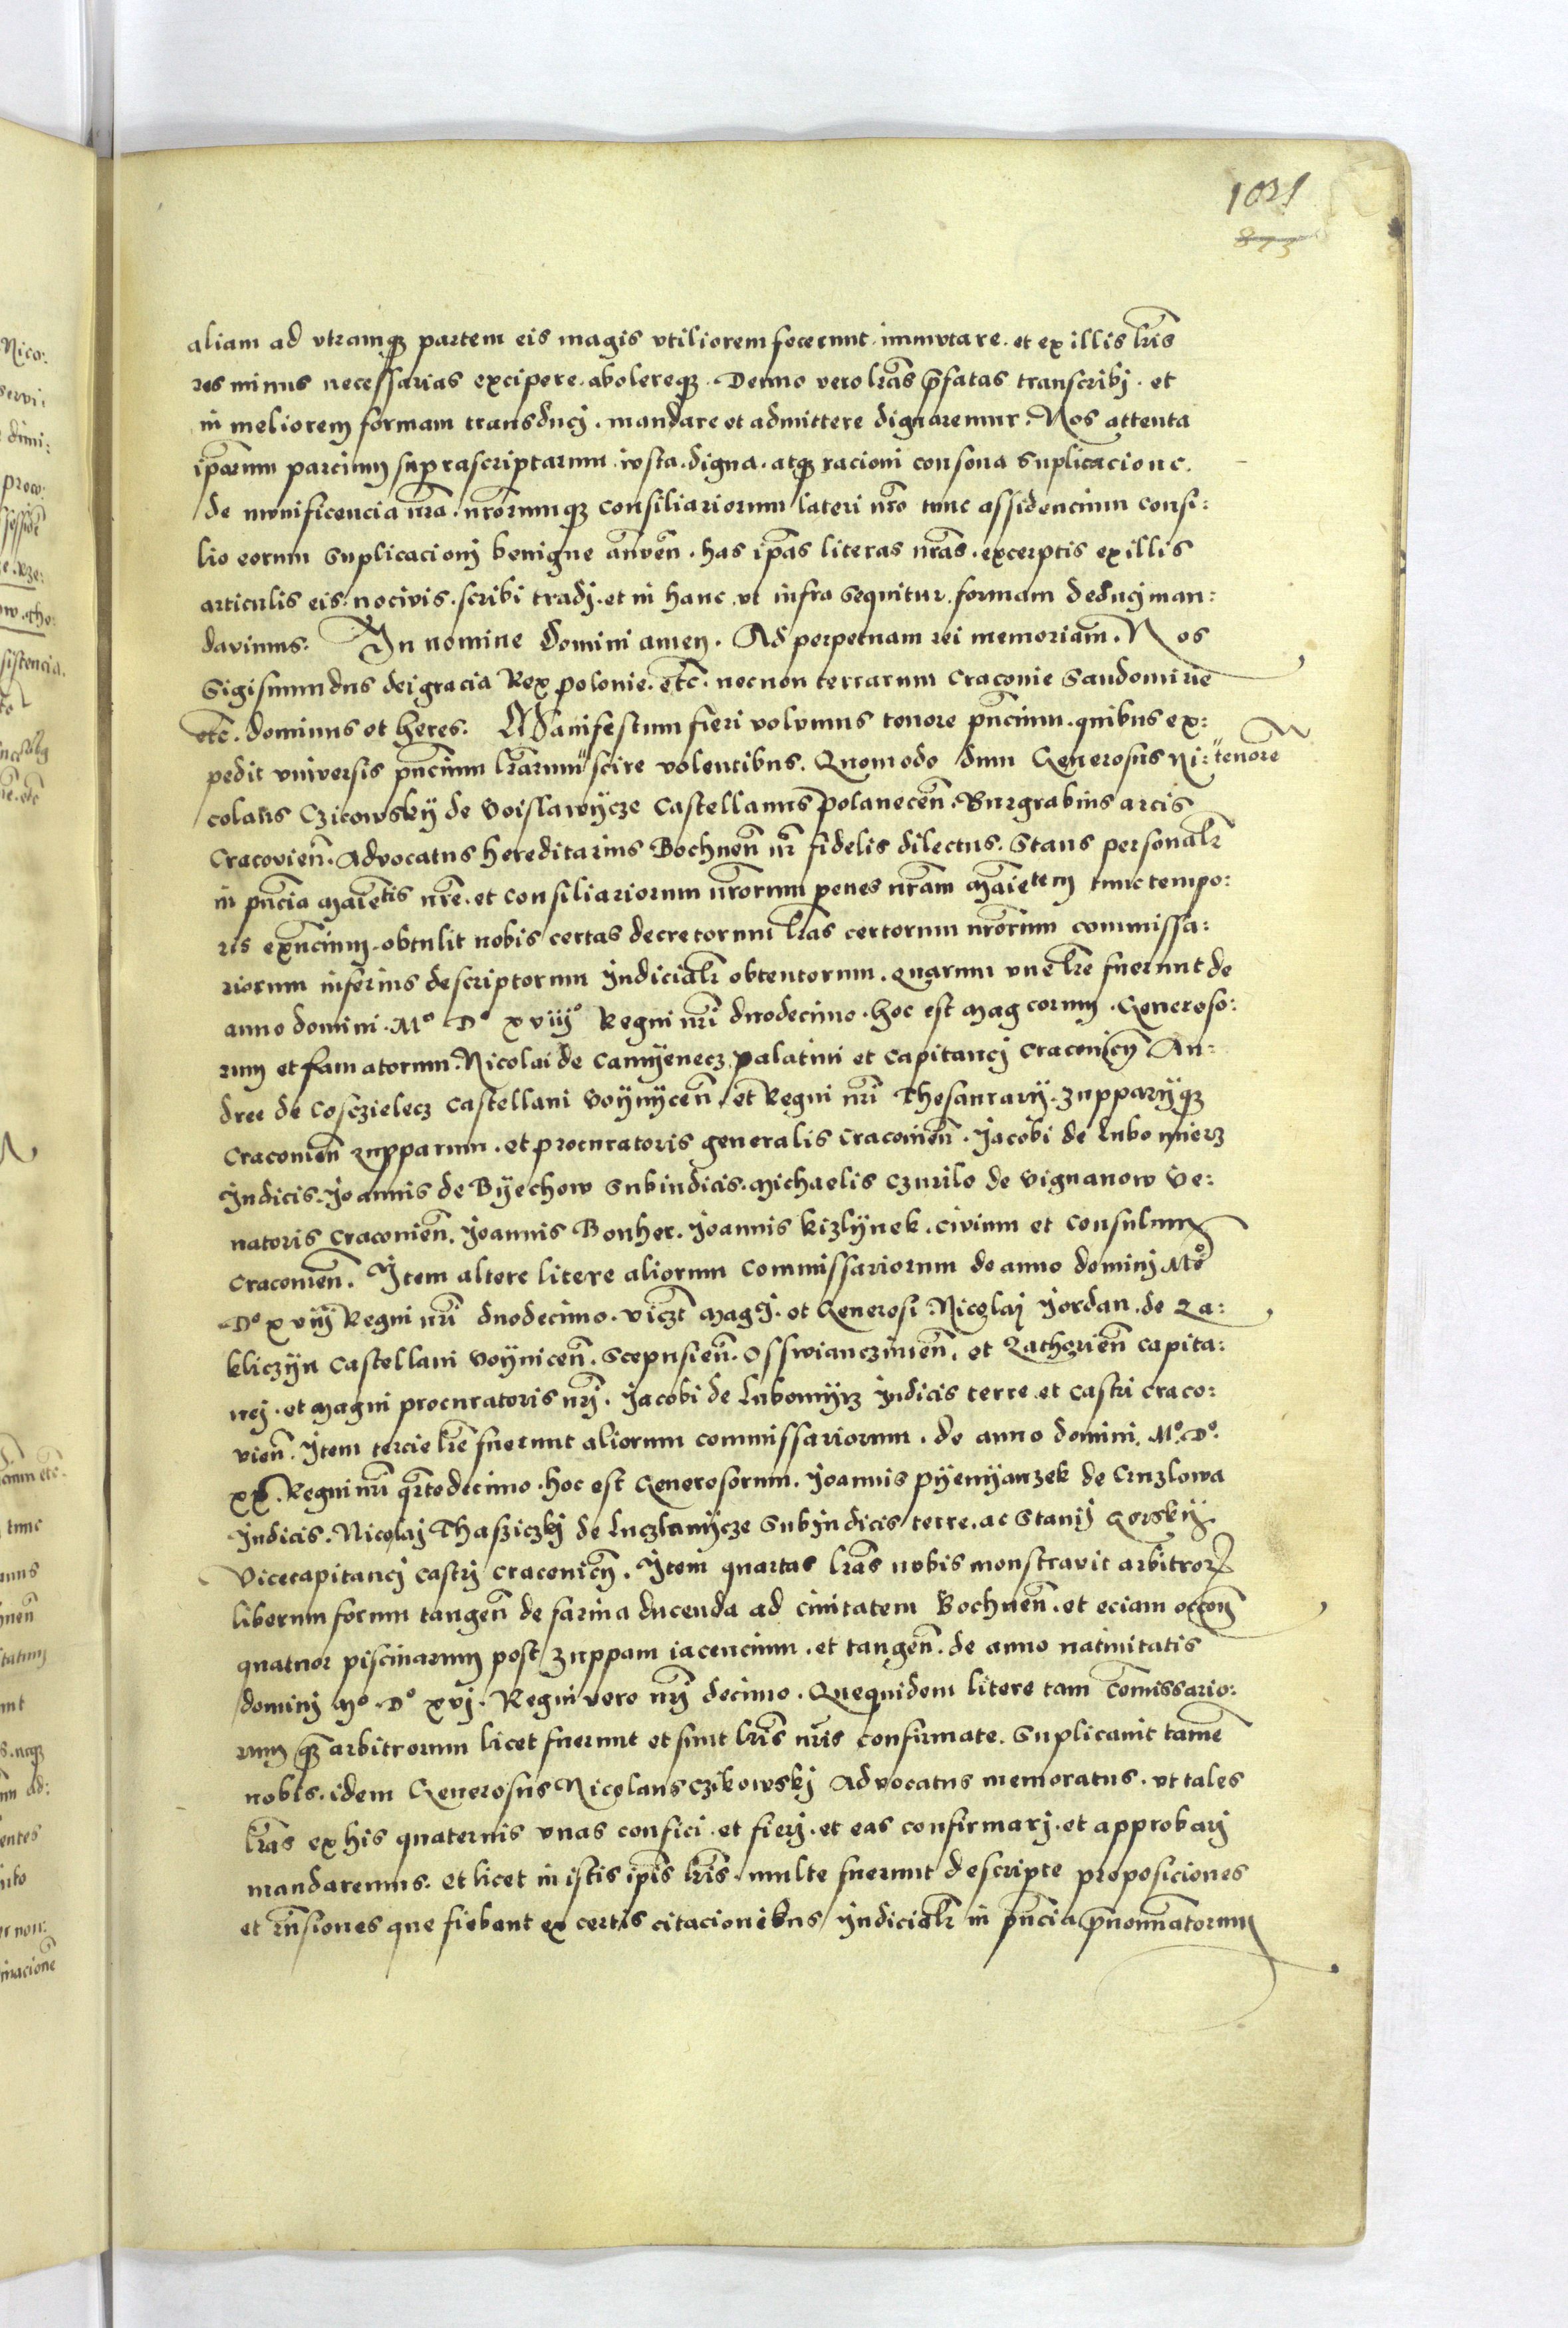 1031
873
aliam ad vtramqȝ partem eis magis vtiliorem fecerunt immvtare. et ex illis lr̃is
res minus necessarias excipere. abolereqȝ. Denuo vero lr̃as p̃fatas transcribj. et
in meliorem formam transducj. mandare et admittere dignaremur. Nos attenta
ip̃arum parcium suprascriptarum. iusta. digna. atqȝ racioni consona suplicacione.
de munificencia nr̃a. nr̃orumqȝ consiliariorum lateri nr̃o tunc assidencium consi:
lio eorum suplicacionj benigne annuen̄. has ip̃as literas nr̃as. excerptis ex illis
articulis eis. nocivis. scribi tradj. et in hanc. vt infra sequitur. formam deducj man:
davimus. In nomine domini amen. Ad perpetuam rei memoriam. Nos
Sigismundus dei gracia Rex polonie. etc̄. necnon terrarum Cracouie Sandomirie
etc̄. dominus et heres. Manifestum fieri volumus tenore pn̄cium. quibus ex:
pedit vniversis pn̄cium lr̃arum " scire volentibus. Quomodo dum Generosus Ni:
" tenore
colaus Czicowskÿ de Voislawÿcze Castellanus polanecen̄. Burgrabius arcis
Cracovien̄. Advocatus hereditarius Bochnen̄ nr̃ fidelis dilectus. Stans personalr̃
in pn̄cia maiẽtis nr̃e. et consiliariorum nr̃orum penes nr̃am maiẽtem tunc tempo:
ris exn̄cium. obtulit nobis certas decretorum lr̃as certorum nr̃orum commissa:
riorum inferius descriptorum Judicialr̃ obtentorum. quarum vne lr̃e fuerunt de
anno domini. Mº Dº xviijº Regni nr̃i duodecimo. hoc est magcorum. Generoso:
rum et famatorum. Nicolai de Camÿenecz palatini et Capitanej Cracouien̄ An:
dree de Cosczielecz Castellani Voÿnÿcen̄. et Regni nr̃i Thesaurarÿ. zupparÿqȝ
Cracouien̄ zupparum. et procuratoris generalis Cracouien̄. Jacobi de Lubomierz
Judicis. Joannis de Bÿechow Subiudicis. Michaelis Czurilo de Vignanow Ve:
natoris Cracouien̄. Joannis Bonher. Joannis kizlÿnek. civium et Consulum
Cracouien̄. Item altere litere aliorum Commissariorum de anno dominj Mº
Dº xviij Regni nr̃i duodecimo. viczt magcj. et Generosi Nicolaj Jordan. de Za:
kliczÿn Castellani Voÿnicen̄. Scepusien̄. Osswianczimen̄. et Zathorien̄ Capita:
nej. et magni procuratoris nr̃j. Jacobi de Lubomÿrz Judicis terre et castri Craco:
vien̄. Item tercie lr̃e fuerunt aliorum commissariorum. de anno domini. Mº. Dº.
xx. Regni nr̃i qr̃todecimo. hoc est Generosorum. Joannis pÿenÿanzek de Cruzlowa
Judicis. Nicolaj Thasziczkj de Luczlawÿcze Subjudicis terre. ac Stanij Gorskÿ
Vicecapitanej castrj Cracouien̄. Item quartas lr̃as nobis monstravit arbitror̃
liberum forum tangen̄ de farina ducenda ad ciuitatem Bochnen̄. et eciam
quatuor piscinarum post zuppam iacencium. et tangen̄. de anno natiuitatis
dominj Mº. Dº xvj. Regni vero nr̃j decimo. Quequidem litere tam com̃issario:
rum qȝ arbitrorum licet fuerunt et sunt lr̃is nr̃is confirmate. Suplicauit tamẽ
nobis. idem Generosus Nicolaus Czikowskj Advocatus memoratus. vt tales
lr̃as ex his quaternis vnas confici. et fierj. et eas confirmarj. et approbarj
mandaremus. et licet in istis ip̃is lr̃is. multe fuerunt descripte proposiciones
et rn̄siones que fiebant ex certis citacionibus Judicialr̃ in pn̄cia p̃nominatorum